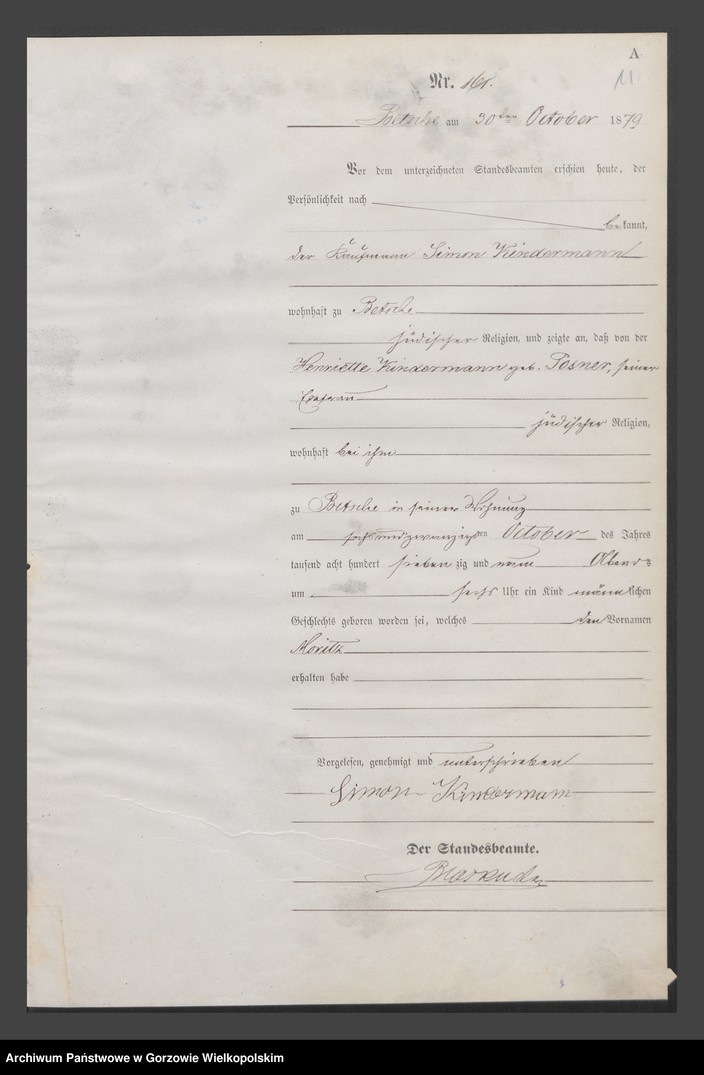 A
11
Nr. 161.
Betsche am 30ten October 1879
Vor dem unterzeichneten Standesbeamten erschien heute, der
Persönlichkeit nach
bekannt,
der Kaufmann Simon Kindermann
wohnhaft zu Betsche
jüdischer Religion, und zeigte an, daß von der
Henriette Kindermann geb. Posner, seiner
Ehefrau
jüdischer Religion,
wohnhaft bei ihm
zu Betsche in seiner Wohnung
am sechsundzwanzigsten October des Jahres
tausend acht hundert siebenzig und neun Abends
um sechs Uhr ein Kind männlichen
Geschlechts geboren worden sei, welches den Vornamen
Moritz
erhalten habe
Vorgelesen, genehmigt und unterschrieben
Simon Kindermann
Der Standesbeamte.
Archiwum Państwowe w Gorzowie Wielkopolskim